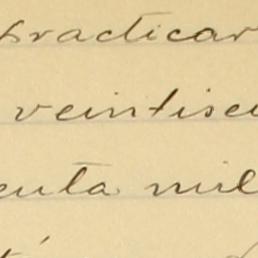 practicar
veintisei
enta mil